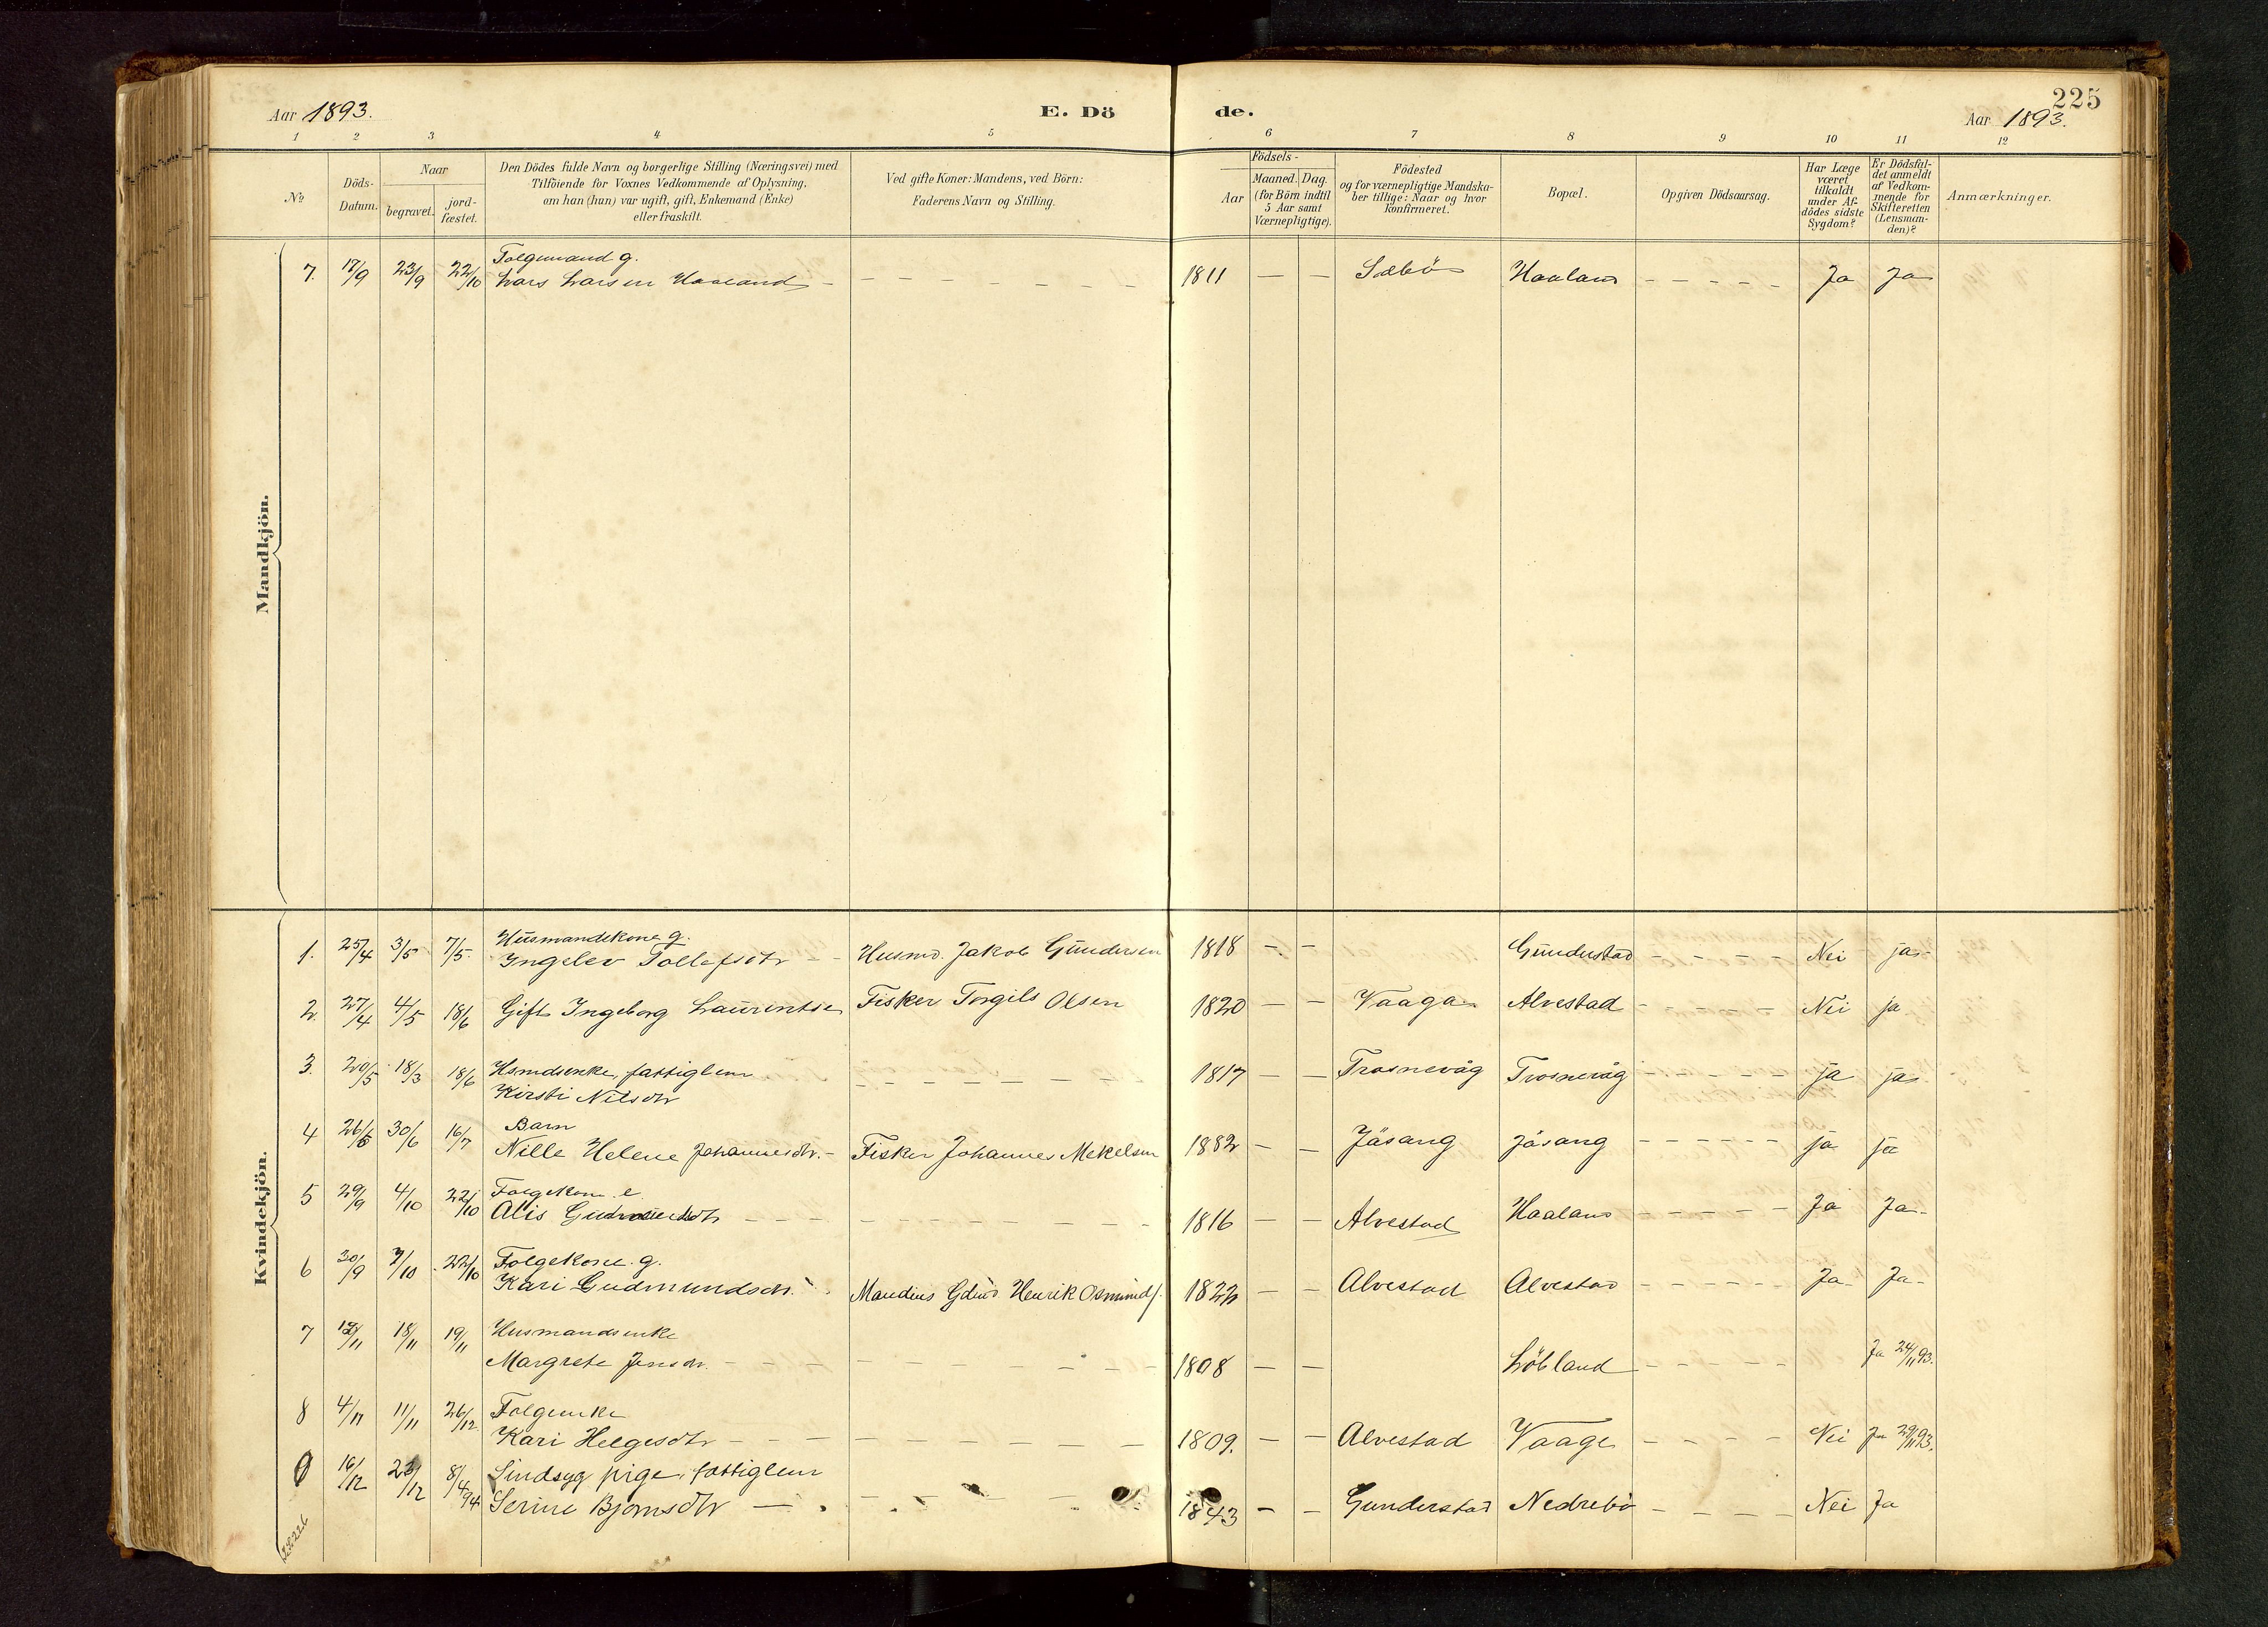 225
Aar 1893. E. Dö de. Aar 1893.
1 2 3 4 5 6 7 8 9 10 11 12
No
Döds-Datum.
Naar
begravet.
jord-fæstet.
Den Dödes fulde Navn og borgerlige Stilling (Næringsvei) med
Tilföiende for Voxnes Vedkommende af Oplysning,
om han (hun) var ugift, gift, Enkemand (Enke)
eller fraskilt.
Ved gifte Koner: Mandens, ved Börn:
Faderens Navn og Stilling.
Födsels-
Aar
Maaned. Dag.
(for Börn indtil
5 Aar samt
Værnepligtige).
Födested
og for værnepligtige Mandska-
ber tillige: Naar og hvor
konfirmeret.
Bopæl.
Opgiven Dödsaarsag.
Har Læge
været
tilkaldt
under Af-
dödes sidste
Sygdom?
Er Dödsfal-
det anmeldt
af Vedkom-
mende for
Skifteretten
(Lensman-
den)?
Anmærkninger.
Mandkjön.
Folgemand g.
7. 17/9 23/9 22/10 Lars Larsen Haaland - - - - - - - 1811 - - Sæbö Haaland - - - - - Ja Ja
Kvindekjön.
Husmandskone g.
1. 25/4 3/5 7/5 Ingelev Tollefsdtr - - Husmd. Jakob Gundersen 1818 - - Gunderstad - - - - Nei ja
2. 27/4 4/5 18/6 Gift Ingeborg Laurintse Fisker Torgils Olsen 1820 - - Vaage Alvestad - - - - - Nei ja
3. 20/5 18/3 18/6 Hsmdsenke, fattiglem - - - - - - - 1817 - - Trosnevåg Trosnevåg - - - - - ja ja
Kirsti Nilsdtr
Barn
4 26/6 30/6 16/7 Nille Helene Johannesdtr. - Fisker Johannes Mekelsen 1882 - - Jäsang Jäsang - - - - - - ja ja
5 29/9 4/10 22/10 Folgekone e
Alis - - - - - - - 1816 - - Alvestad Haaland - - - - - Ja Ja
6 30/9 7/10 22/10 Folgekone g.
Kari Gudmundsdtr. Mandens Henrik Osmunds. 1822 - - Alvestad Alvestad - - - - - Ja Ja
7 12/11 18/11 19/11 Husmandsenke
Margrete Jensdtr. - - - - - - - 1808 - - Löbland - - - - Ja 24/11 93.
8 4/11 11/11 26/12 Folgeenke
Kari Helgesdtr - - - - - - - 1809. - - Alvestad Vaage - - - - Nei Ja 29/11 93.
9 16/12 23/12 8/4 94 Sindsyg pige, fattiglem
Serine Bjornsdtr - - - - - - 1843 - - Gunderstad Nedrebö - - - - Nei Ja